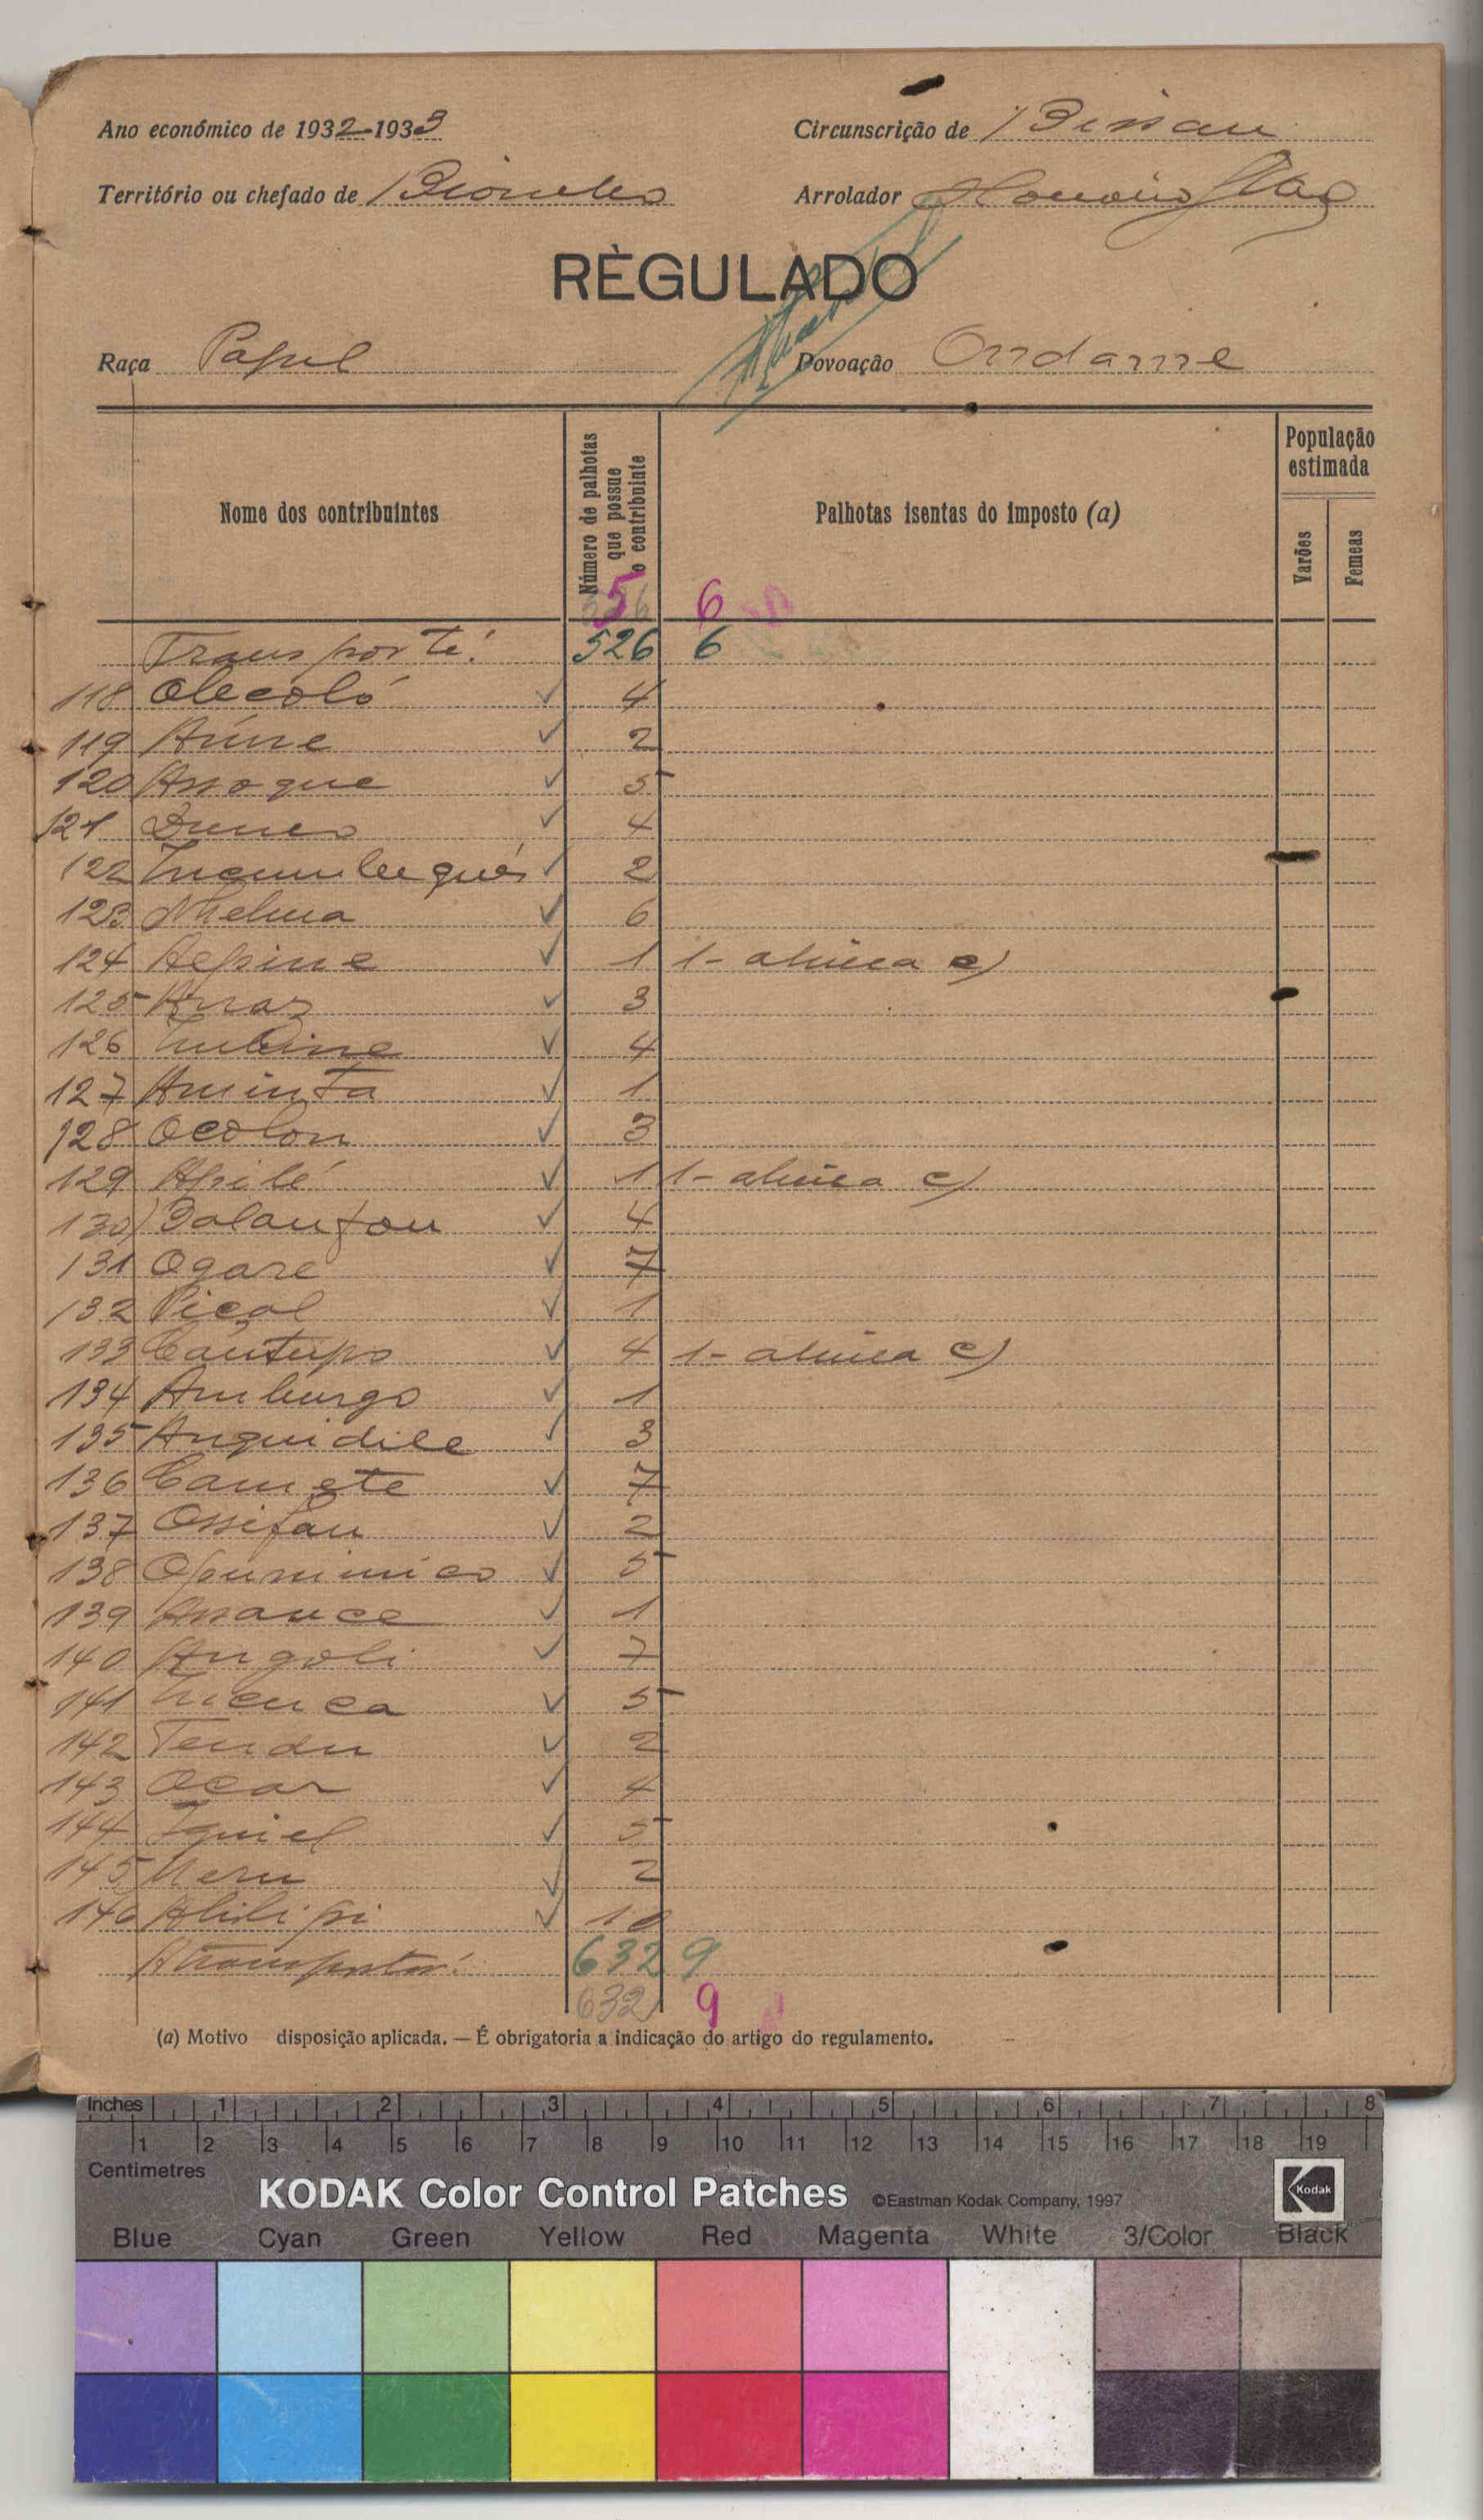 Ano económico de 1932-1933
Circunscrição de Bissau
Território ou chefado de
Arrolador
RÈGULADO
Raça Papel
Povoação Ondame
Nome dos contribuintes
Número de palhotas que possue o contribuinte
Palhotas isentas do imposto (a)
População estimada
Varões
Femeas
5 6
Transporte: 526 6
118 Olecoló ✓ 4
119 ✓ 2
120 Assoque ✓ 5
121 ✓ 4
122 ✓ 2
123 ✓ 6
124 Aepine ✓ 1 1- alinea c)
125 ✓ 3
126 ✓ 4
127 Aminta ✓ 1
128 Ocolon ✓ 3
129 Apilé ✓ 1 1- alinea c)
130 ✓ 4
131 Ogare ✓ 7
132 Picol ✓ 1
133 ✓ 4 1- alinea c)
134 Amburgo ✓ 1
135 Anquidile ✓ 3
136 Camete ✓ 7
137 ✓ 2
138 ✓ 5
139 Assance ✓ 1
140 Angoli ✓ 7
141 ✓ 5
142 Tendu ✓ 2
143 Ocar ✓ 4
144 Iquiel ✓ 5
145 ✓ 2
146 ✓ 10
A transportar: 632 9
632 9
(a) Motivo disposição aplicada. — É obrigatoria a indicação do artigo do regulamento.
Inches 1 2 3 4 5 6 7 8
1 2 3 4 5 6 7 8 9 10 11 12 13 14 15 16 17 18 19
Centimetres
KODAK Color Control Patches ©Eastman Kodak Company, 1997 Kodak
Blue Cyan Green Yellow Red Magenta White 3/Color Black